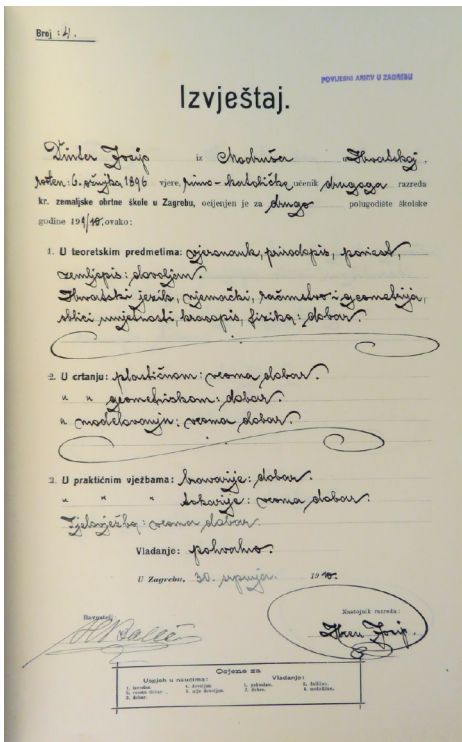 Broj : 4.
POVIJESNI ARHIV U ZAGREBU
Izvještaj.
Dinter Josip iz Mošuša u Hrvatskoj,
rođen: 6. ožujka 1896 vjere, rimo-katoličke, učenik drugoga razreda
kr. zemaljske obrtne škole u Zagrebu, ocijenjen je za drugo polugodište školske
godine 1909/10. ovako:
1. U teoretskim predmetima: vjeronauk, prirodopis, poviest,
zemljopis: dovoljan.
Hrvatski jezik, njemački, računstvo i geometrija,
oblici umjetnosti, krasopis, fizika: dobar.
2. U crtanju: plastičnom: veoma dobar.
" " geometriskom: dobar.
" modelovanju: veoma dobar.
3. U praktičnim vježbama: bravarije: dobar.
" " " tokarije: veoma dobar.
Tjelovježba: veoma dobar.
Vladanje: pohvalno.
U Zagrebu, 30. srpnja 1910.
Ravnatelj: Nastojnik razreda:
Josip
Ocjene za
Uspjeh u naucima: Vladanje:
1. izvrstan. 4. dovoljan. 1. pohvalno.
2. veoma dobar. 5. nije dovoljan. 2. dobro.
3. dobar.